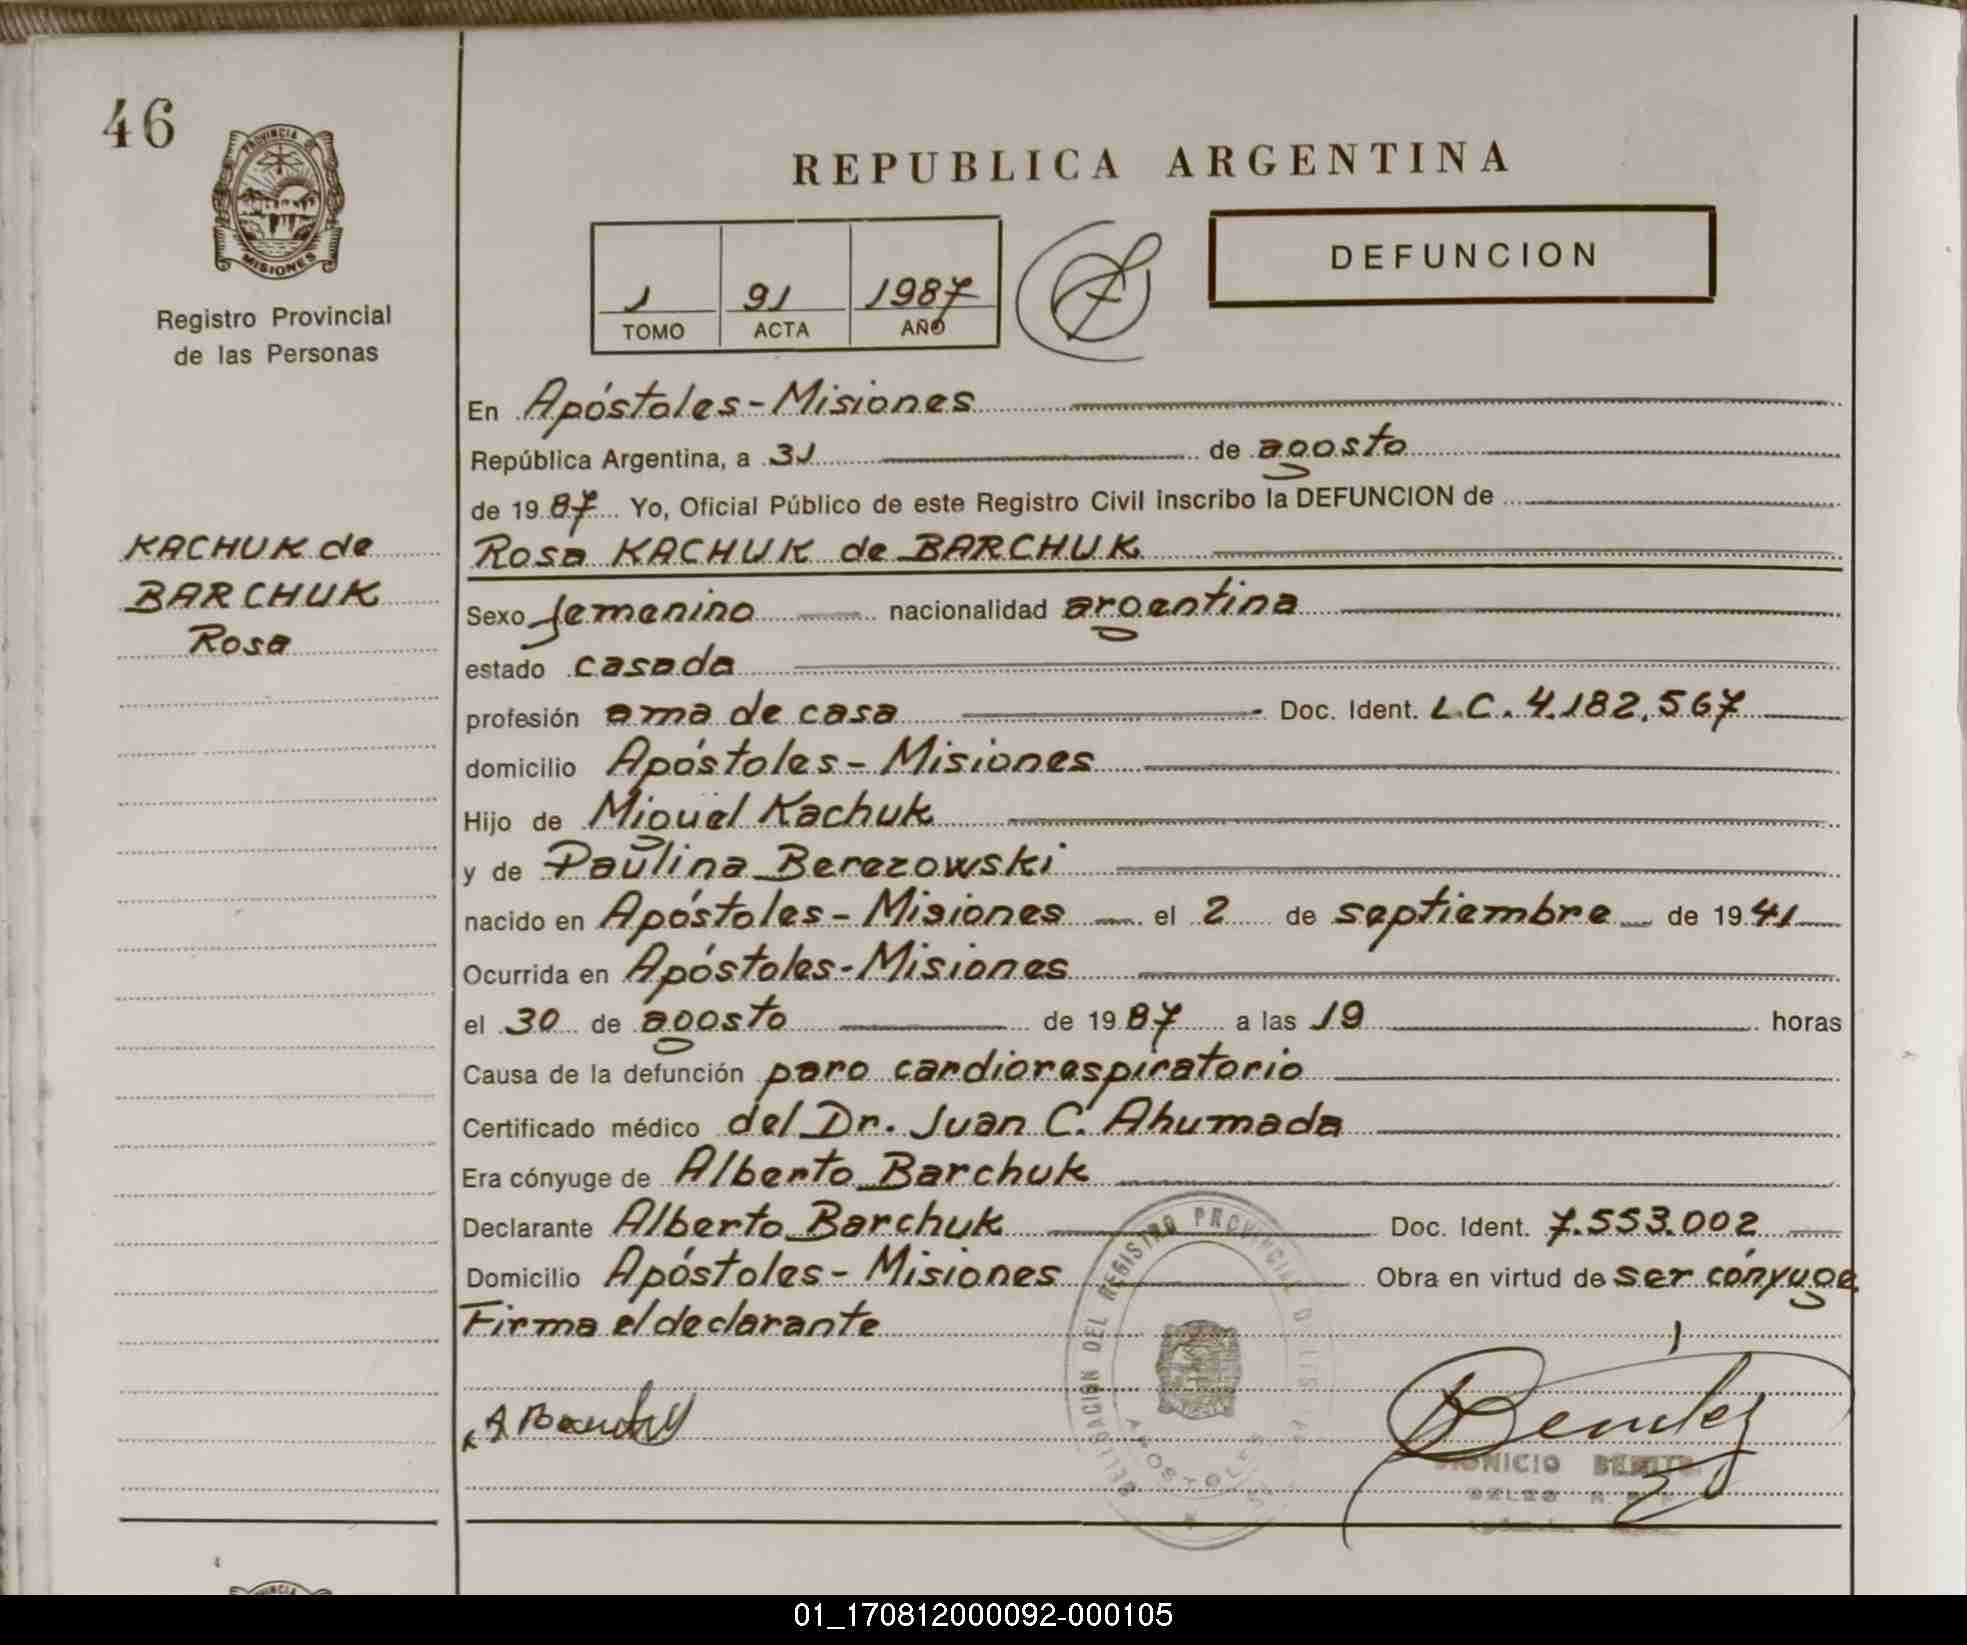 46
PROVINCIA DE
MISIONES
Registro Provincial
de las Personas
KACHUK de
BARCHUK
Rosa
REPUBLICA ARGENTINA
1 91 1987
TOMO ACTA AÑO
DEFUNCION
En Apóstoles - Misiones
República Argentina, a 31 de agosto
de 1987 Yo, Oficial Público de este Registro Civil inscribo la DEFUNCION de
Rosa KACHUK de BARCHUK
Sexo femenino nacionalidad argentina
estado casada
profesión ama de casa Doc. Ident. L.C. 4.182.567
domicilio Apóstoles - Misiones
Hijo de Miguel Kachuk
y de Paulina Berezowski
nacido en Apóstoles - Misiones el 2 de septiembre de 1941
Ocurrida en Apóstoles - Misiones
el 30 de agosto de 1987 a las 19 horas
Causa de la defunción paro cardiorespiratorio
Certificado médico del Dr. Juan C. Ahumada
Era cónyuge de Alberto Barchuk
Declarante Alberto Barchuk Doc. Ident. 7.553.002
Domicilio Apóstoles - Misiones Obra en virtud de ser cónyuge
Firma el declarante
DELEGACION DEL REGISTRO PROVINCIAL DE LAS
APOSTOLES
Benitez
DIONICIO BENITEZ
01_170812000092-000105